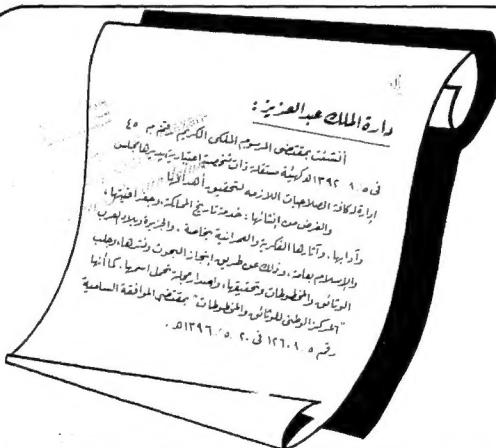 دارة الملك عبد العزيز :
أنشئت بمقتضى المرسوم الملكى الكريم رقم م / ٤٥
فى ٥ / ٨ / ١٣٩٢ هـ كهيئة مستقلة ذات شخصية إعتبارية يديرها مجلس
إدارة له كافة الصلاحيات اللازمة لتحقيق أهدافها
والغرض من إنشائها : خدمة تاريخ المملكة ، وجغرافيتها ،
وآدابها ، وآثارها الفكرية والعمرانية بخاصة ، والجزيرة وبلاد العرب
والإسلام بعامة ، وذلك عن طريق إنجاز البحوث ونشرها ، وجلب
الوثائق والمخطوطات وتحقيقها ، وإصدار مجلة تحمل اسمها . كما أنها
" المركز الوطنى للوثائق والمخطوطات " بمقتضى الموافقة السامية
رقم ٥ / ١٢٦٠٩ فى ٢٠ / ٥ / ١٣٩٦ هـ .